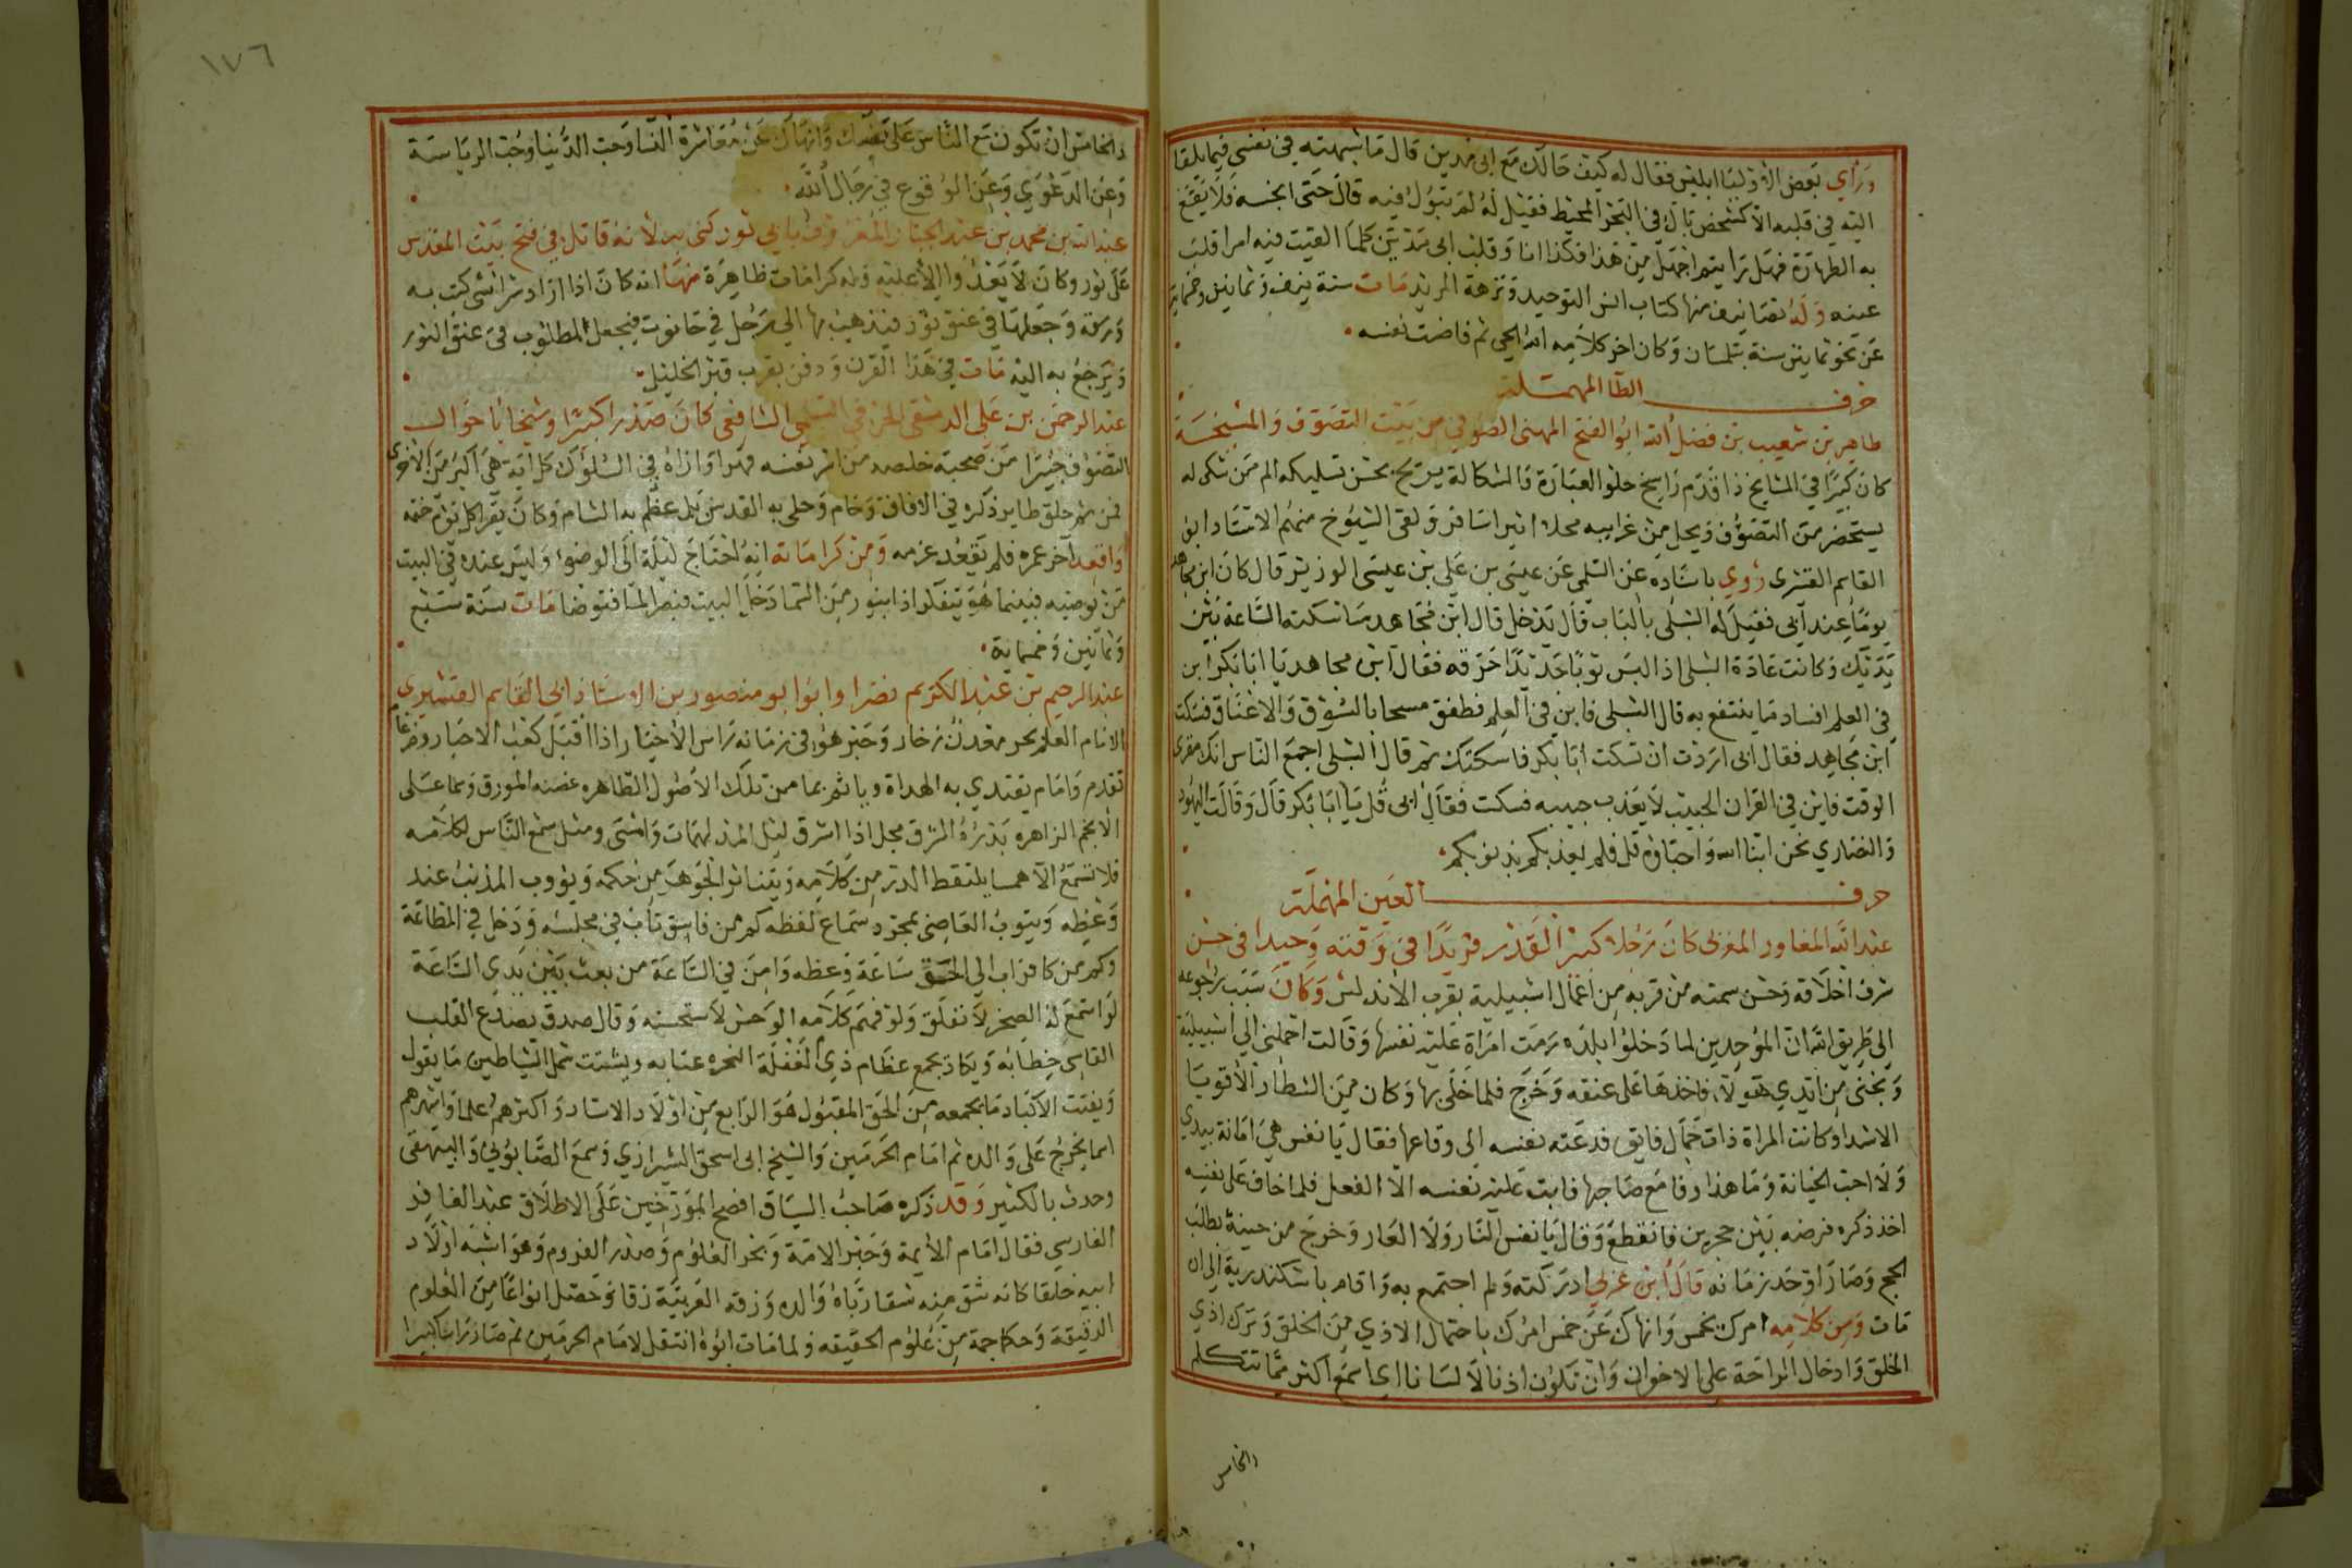 وراي بعض الاوليا ابليس فقال له كيف حالك مع ابي مدين قال ما شبهته في نفسي فيما يلقا
اليه في قلبه الا كشخص بال في البحر المحيط فقيل له لم تبول فيه قال حتى انجسه فلا يقع
به الطهارة فهل رايتم اجهل من هذا فكذا انا وقلب ابي مدين كلما القيت فيه امرا قلب
عينه وله تصانيف منها كتاب انس التوحيد ونزهة المريد مات سنة نيف وثمانين وخمماية
عن نحو ثمانين سنة بتلمسان وكان اخر كلامه الله الحي ثم فاضت نفسه
حرف الطا المهملة
طاهر بن شعيب بن فضل الله ابو الفتح المهنى الصوفي من بيت التصوف والمشيخة
كان كبيرا في المشايخ ذا قدم راسخ حلو العبارة والشكالة يريح بحسن تسليكه الم من شكى له
يستحضر من التصوف ويحل من غرايبه محلا اثيرا سافر ولقى الشيوخ منهم الاستاد ابو
القاسم القشرى روي باسناده عن السلمى عن عيسى بن علي بن عيسى الوزير قال كان ابن مجاهد
يوما عند ابي فقيل له الشبلى بالباب قال يدخل قال ابن مجاهد ساسكته الساعة بين
يديك وكانت عادة الشبلى اذا لبس ثوبا جديدا خرقه فقال ابن مجاهد يا ابا بكر اين
في العلم افساد ما ينتفع به قال الشبلى فاين في العلم فطفق مسحا بالسوق والاعناق فسكت
ابن مجاهد فقال ابي اردت ان تسكت ابا بكر فاسكتك ثم قال الشبلى اجمع الناس انك مقرى
الوقت فاين في القران الحبيب لا يعذب حبيبه فسكت فقال ابي قل يا ابا بكر قال وقالت اليهود
والنصاري نحن ابنا الله واحباؤه قل فلم يعذبكم بذنوبكم
حرف العين المهملة
عبد الله المغاور المغربي كان رجلا كبير القدر فريدا في وقته وحيدا في حسن
شرف اخلاقه وحسن سمته من قرية من اعمال اشبيلية بقرب الاندلس وكان سبب رجوعه
الى طريق الله ان الموحدين لما دخلوا بلده رمت امراة عليه نفسها وقالت احملني الي اشبيلية
ونجنى من ايدي هولا فاخذها على عنقه وخرج فلما خلى بها وكان من الشطار الاقويا
الاشدا وكانت المراة ذات جمال فايق فدعته نفسه الى وقاعها فقال يا نفس هي امانة بيدي
ولا احب الخيانة وما هذا وفا مع صاحبها فابت عليه نفسه الا الفعل فلما خاف على نفسه
اخذ ذكره فرضه بين حجرين فانقطع وقال يا نفس النار ولا العار وخرج من حينه يطلب
الحج وصار اوحد زمانه قال ابن عربي ادركته ولم اجتمع به واقام باسكندرية الى ان
مات ومن كلامه امرك بخمس وانهاك عن خمس امرك باحتمال الاذي من الخلق وترك اذي
الخلق وادخال الراحة على الاخوان وان تكون اذنا لا لسانا اي اسمع اكثر مما تتكلم
والخامس
١٧٦
والخامس ان تكون مع الناس على نفسك وانهاك عن معاشرة النسا وحب الدنيا وحب الرياسة
وعن الدعوي وعن الوقوع في رجال الله
عبد الله بن محمد بن عبد الجبار المعروف بابي ثور كنى به لانه قاتل في فتح بيت المقدس
على ثور وكان لا يغذوا الا عليه وله كرامات ظاهرة منها انه كان اذا اراد شرا شي كتب به
ورقة وجعلها في عنق ثور فيذهب بها الي رجل في حانوت فيجعل المطلوب في عنق الثور
ويرجع به اليه مات في هذا القرن ودفن بقرب قبر الخليل
عبد الرحمن بن علي الدمشقي الخرقي السلمي الشافعي كان صدرا كبيرا وشيخا باحوال
التصوف خبيرا من صحبه خلصه من اسر نفسه قهرا واراه في السلوك كل اية هي اكبر من الاخرى
فمن ثم حلق طاير ذكره في الافاق وحام وحلى به القدس بل عظم به الشام وكان يقرا كل يوم ختمة
واقعد اخر عمره فلم يقعد عزمه ومن كراماته انه احتاج ليلة الى الوضو وليس عنده في البيت
من يوضيه فبينما هو يتفكر اذا بنور من السما دخل البيت فبصر الما فتوضا مات سنة سبع
وثمانين وخمماية
عبد الرحيم بن عبد الكريم نصرا وابو ابو منصور بن الاستاذ ابي القاسم القشيري
الامام العلم بحر مغدق زخار وحبر هو في زمانه راس الاخيار اذا اقبل كعب الاحبار وضرغام
تقدم وامام تقتدي به الهداة وياتم بما من تلك الاصول الطاهره غصنه المورق وسما على
الانجم الزاهره بدره المشرق مجل اذا اشرق ليل المذلهمات وامشى ومثل سمع الناس لكلامه
فلا تسمع الا همسا يلتقط الدر من كلامه ويتناثر الجوهر من حكمه ويؤوب المذنب عند
وعظه ويتوب العاصى بمجرد سماع لفظه كم من فاسق تاب في مجلسه ودخل في الطاعة
وكم من كافر اب الي الحق ساعة وعظه وامن في الساعة من بعث بين يدي الساعة
لو استمع له الصخر لانفلق ولو فهم كلامه الوحش لاستحسنه وقال صدق يصدع القلب
القاسى خطابه ويكاد يجمع عظام ذي الغفلة النخره عتابه ويشتت شمل الشياطين ما يقول
ويفتت الاكباد ما يجمعه من الحق المقبول هو الرابع من اولاد الاستاد واكثرهم علما واشهرهم
اسما تخرج على والده ثم امام الحرمين والشيخ ابي اسحق الشيرازي وسمع الصابوني والبيهقى
وحدث بالكثير وقد ذكره صاحب السياق افصح المورخين على الاطلاق عبد الغافر
الفارسي فقال امام الايمة وحبر الامة وبحر العلوم وصدر القروم وهو اشبه اولاد
ابيه خلقا كانه شق منه شقا رباه والده وزقه العربية زقا وحصل انواعا من العلوم
الدقيقة وحكا جمة من علوم الحقيقه ولما مات ابوه انتقل لامام الحرمين ثم صار كبيرا